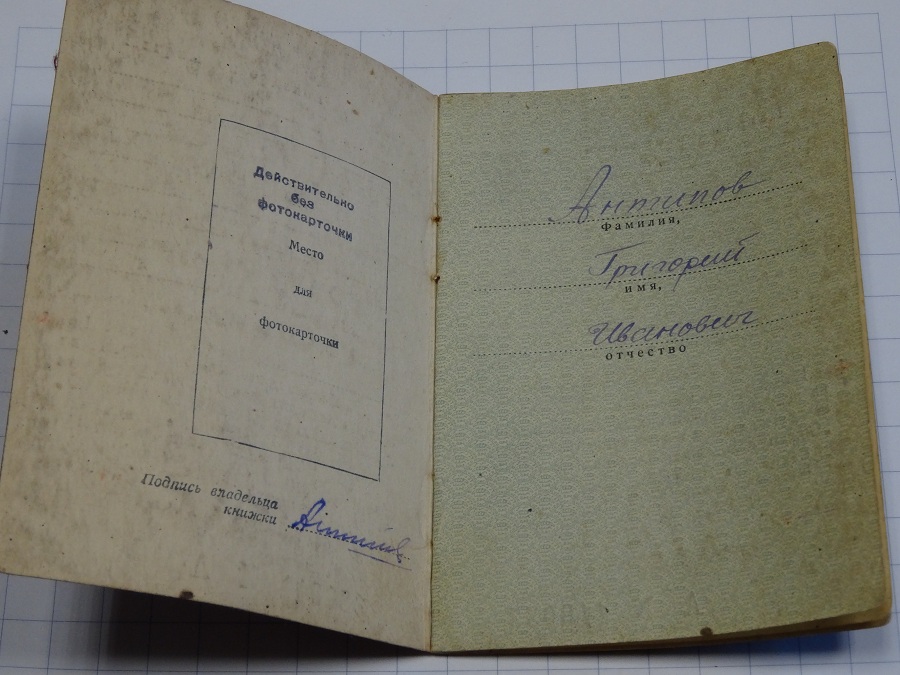 Действительно
без
фотокарточки
Место
для
фотокарточки
Подпись владельца
книжки Антипов
Антипов
фамилия,
Григорий
имя,
Иванович
отчество